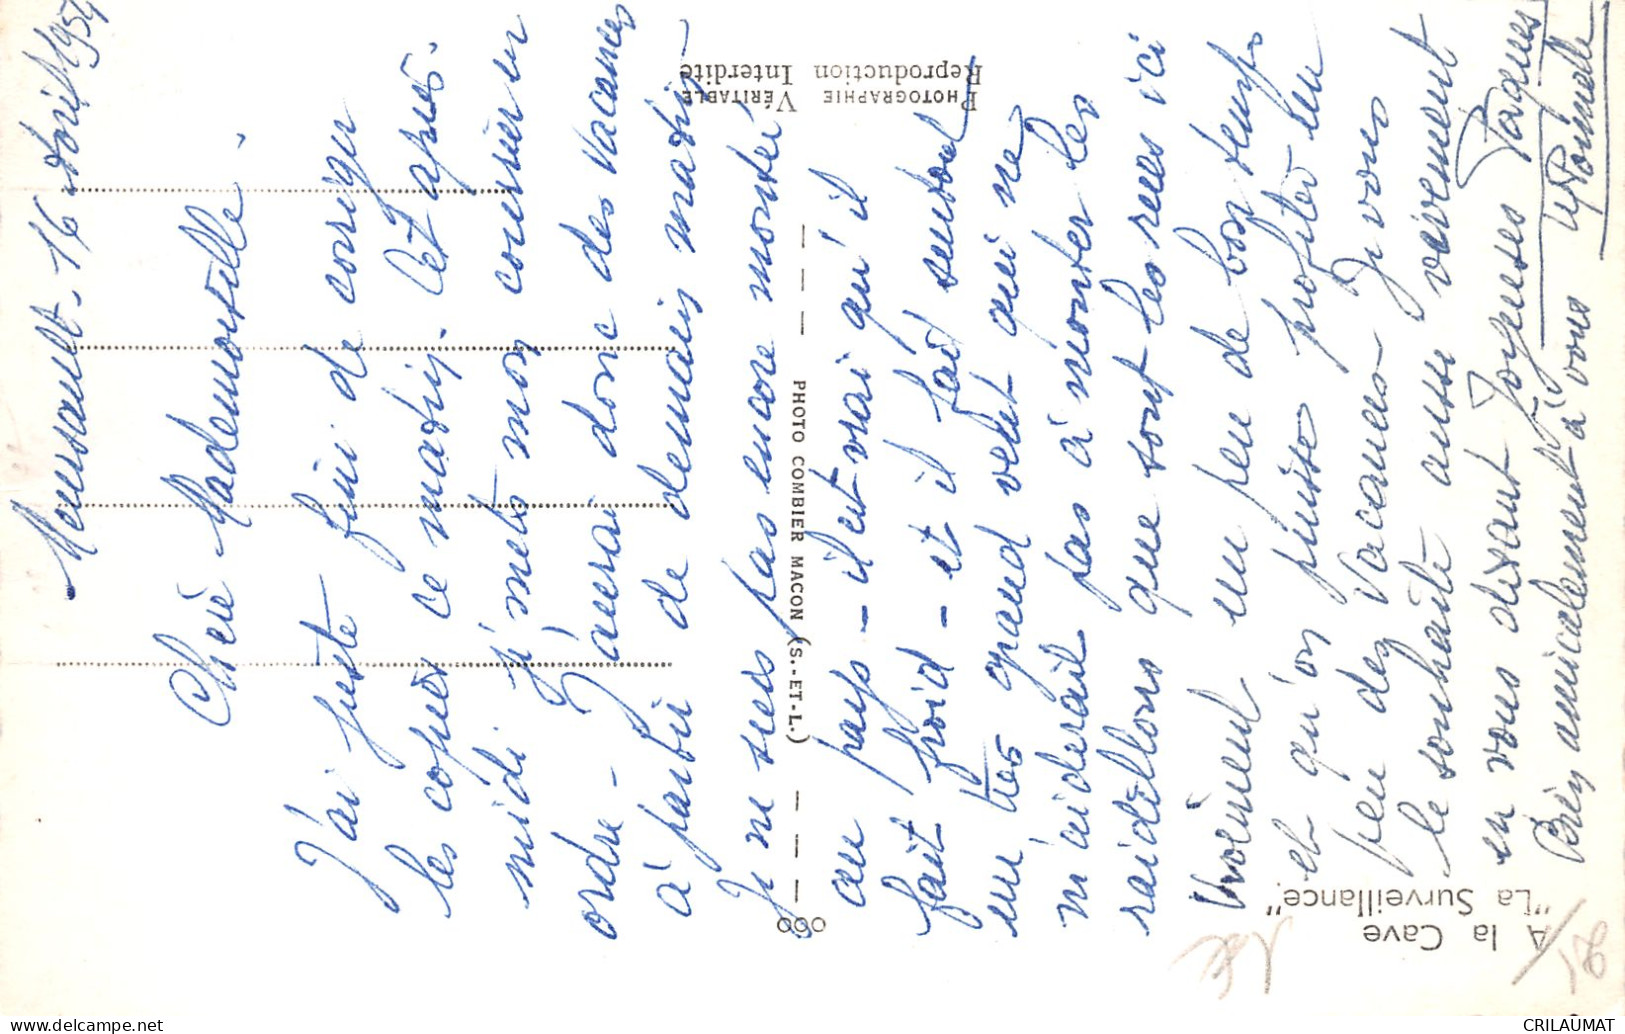 Meursault. 16 Avril 1954
Chère Mademoiselle.
J'ai juste fini de corriger
les copies ce matin. Cet après.
midi j'mets mon courrier en
ordre - J'aurai donc des vacances
à partir de demain matin
Je ne suis pas encore monté
au pays - il est vrai qu'il
fait froid - et il fait surtout
un très grand vent qui ne
m'aiderait pas à monter les
raidillons que sont les rues ici
Vivement un peu de bon temps
et qu'on puisse profiter un
peu des vacances - Je vous
le souhaite aussi vivement
en vous disant Joyeuses Pâques
Bien amicalement à vous
PHOTOGRAPHIE VÉRITABLE
Reproduction Interdite
PHOTO COMBIER MACON (S.-ET-L.)
A la Cave
"La Surveillance"
delcampe.net
CRILAUMAT